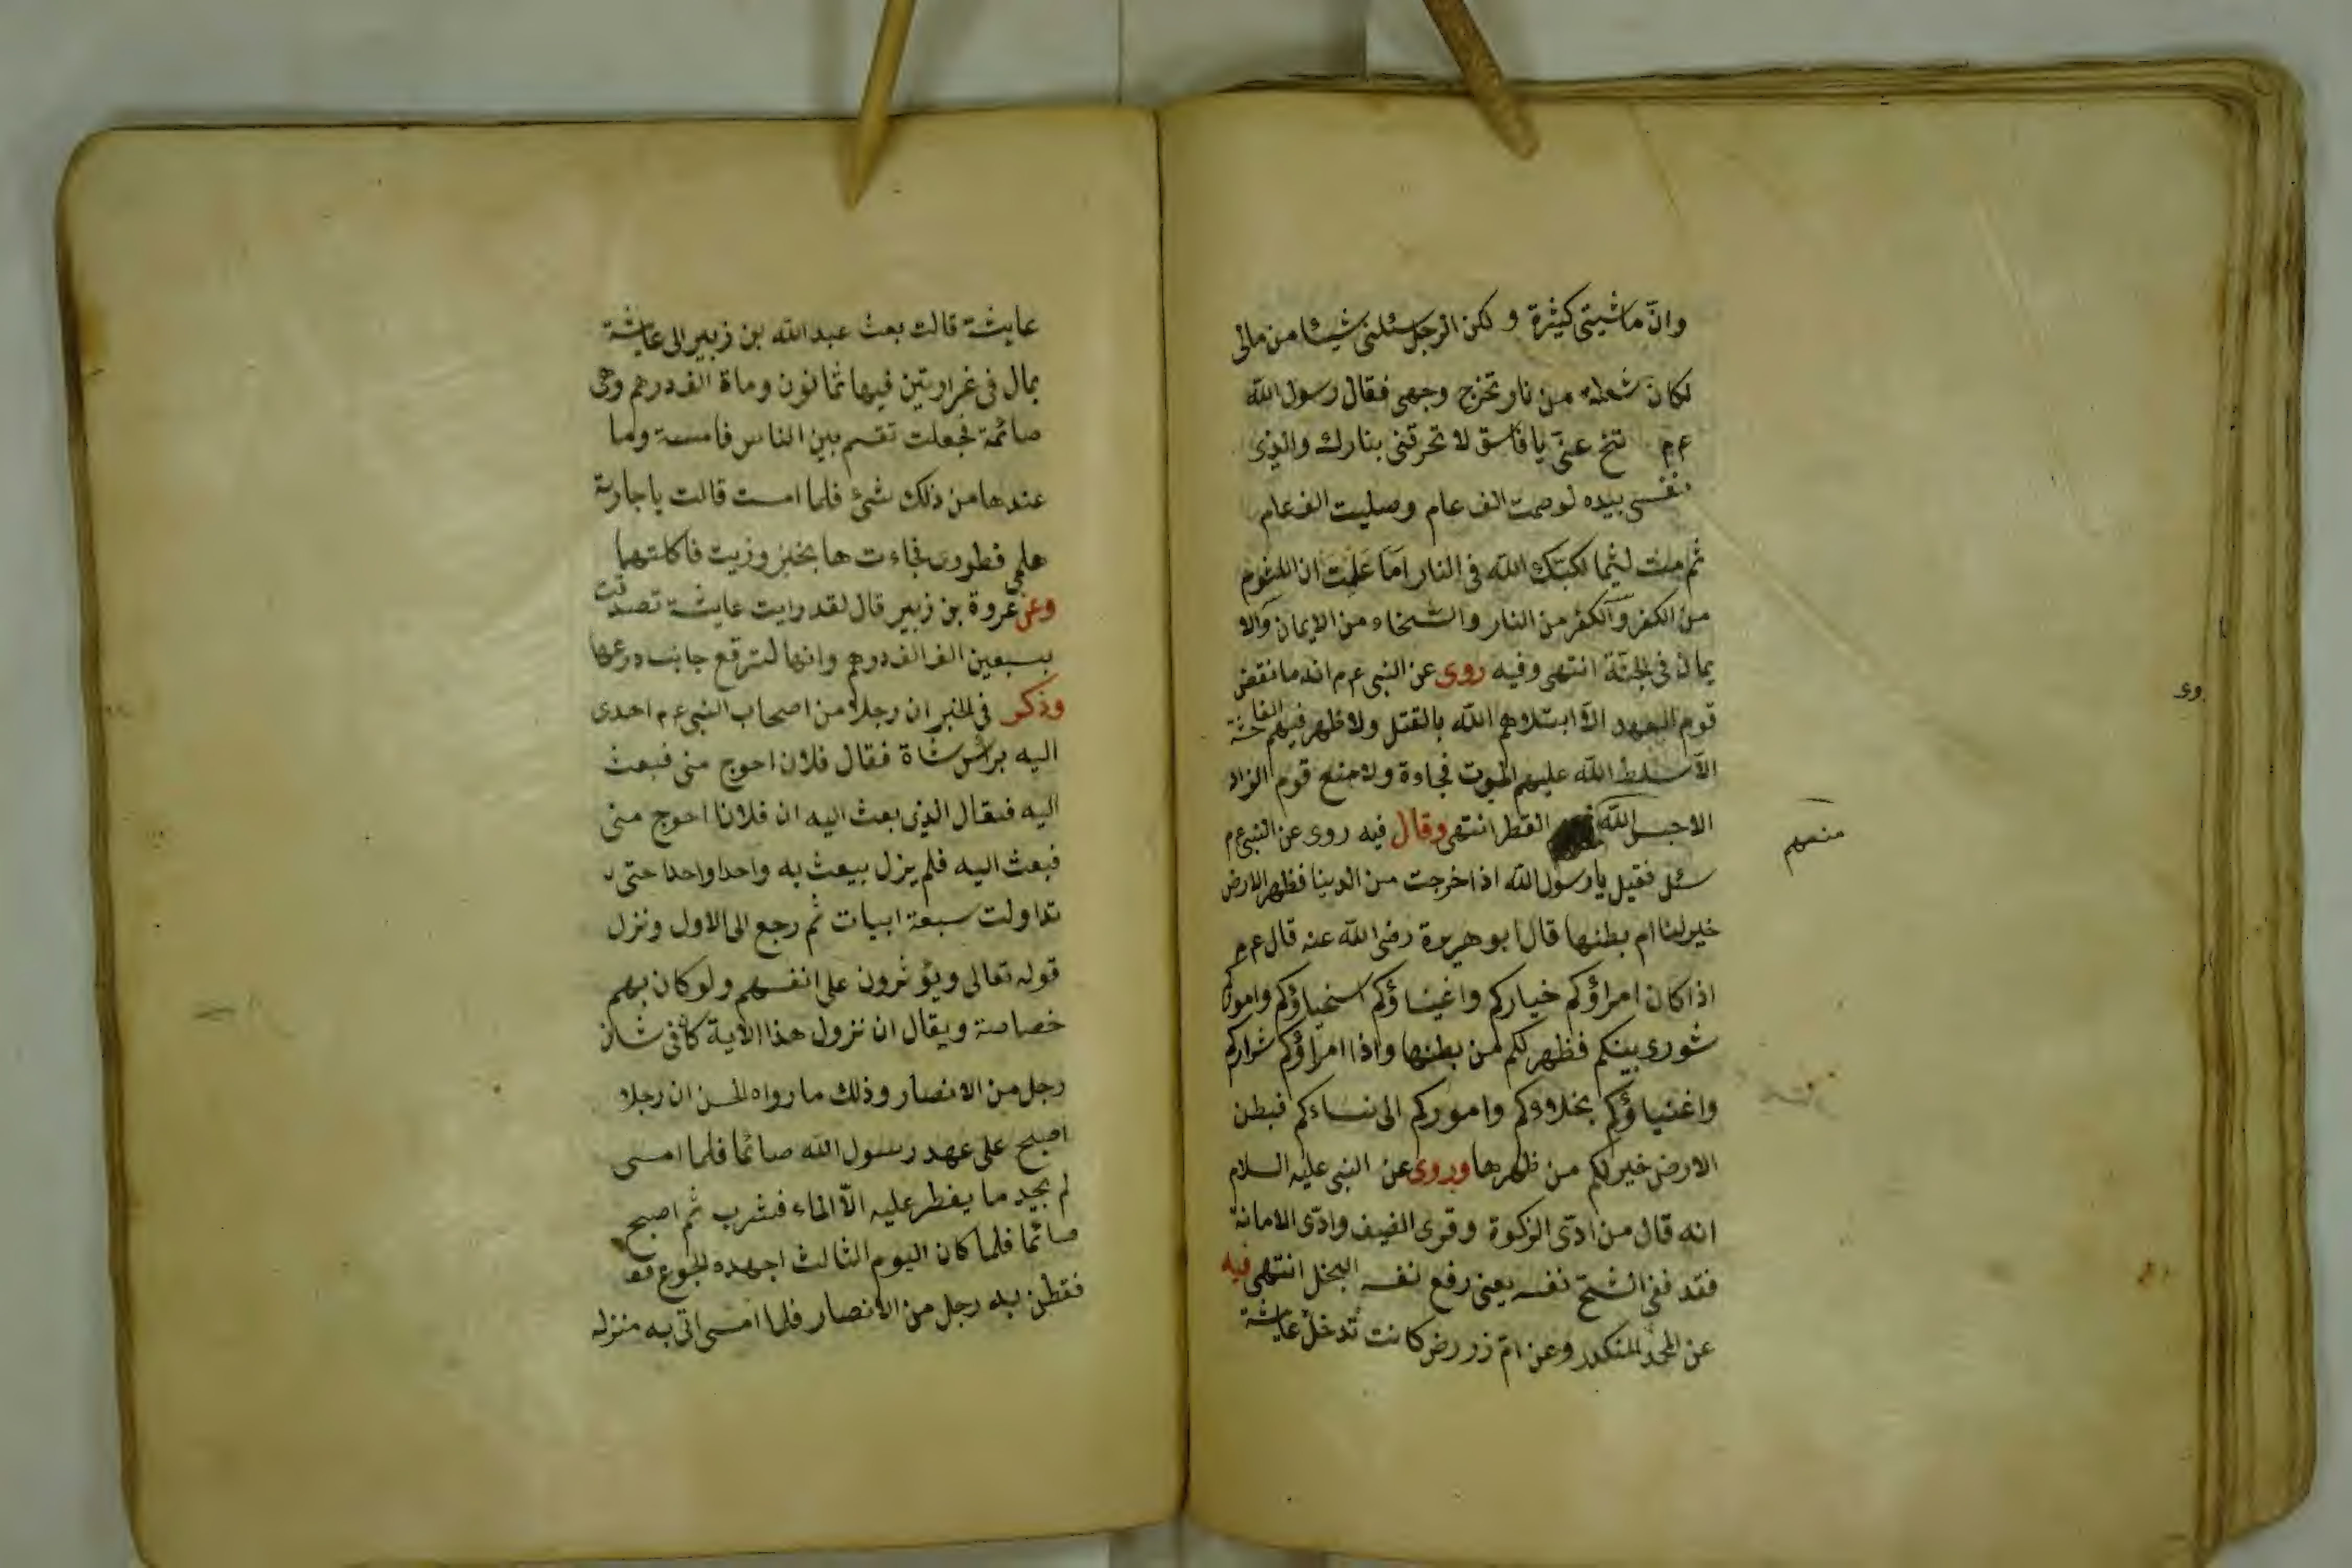 وانّ ماشيتى كثيرة و لكن الرجل سئلنى شيئا من مالى
لكان شعلة من نار تخرج وجهى فقال رسول الله
عم تنح عنى يا فاسق لا تحرقنى بنارك والذى
نفسى بيده لو صمت الف عام وصليت الف عام
ثم مت لئيما لكبتك الله فى النار اما علمت ان اللئوم
من الكفر والكفر من النار والسخاء من الايمان والا
يمان فى الجنة انتهى وفيه روى عن النبى عم انه ما نقض
قوم العهد الا ابتلاهم الله بالقتل ولا ظهر فيهم الفاحشة
الا سلط الله عليهم الموت فجاءة ولا منع قوم الزاد
الا حبس الله القطر انتهى وقال فيه روى عن النبى عم
منهم
سئل فقيل يا رسول الله اذا خرجت من الدينا فظهر الارض
خير لنا ام بطنها قال ابو هريرة رضى الله عنه قال عم
اذا كان امراؤكم خياركم واغنياؤكم اسخياؤكم واموركم
شورى بينكم فظهر لكم من بطنها واذا امراؤكم شراركم
واغنياؤكم بخلاؤكم واموركم الى نساءكم فبطن
الارض خير لكم من ظهرها وروى عن النبى عليه السلام
انه قال من ادّى الزكوة وقرى الضيف وادّى الامانة
فقد فقى الشح نفسه يعنى رفع نفسه البخل انتهى فيه
عن المنكدر وعن امّ زر رض كانت تدخل عايشة
عايشة قالت بعث عبد الله بن زبير الى عايشة
بمال فى غرارتين فيها ثمانون وماة الف درهم وهى
صائمة فجعلت تقسم بين الناس فامست وما
عندها من ذلك شئ فلما امست قالت يا جارية
هلمى فطورى فجاءت ها بخبز وزيت فاكلتهما
وعن عروة بن زبير قال لقد رايت عايشة تصدقت
بسبعين الف الف درهم وانها لترقع جانب درعها
وذكر فى الخبر ان رجلا من اصحاب النبى عم اهدى
اليه براس شاة فقال فلان احوج منى فبعث
اليه فقال الذى بعث اليه ان فلانا احوج منى
فبعث اليه فلم يزل يبعث به واحدا واحدا حتى
تداولت سبعة ابيات ثم رجع الى الاول ونزل
قوله تعالى ويؤثرون على انفسهم ولو كان بهم
خصاصة ويقال ان نزول هذا الاية كان فى شان
رجل من الانصار وذلك ما رواه الحسن ان رجلا
اصبح على عهد رسول الله صائما فلما امسى
لم يجد ما يفطر عليه الّا الماء فشرب ثم اصبح
صائما فلما كان اليوم الثالث اجهده الجوع
فقطن به رجل من الانصار فلما امسى اتى به منزله